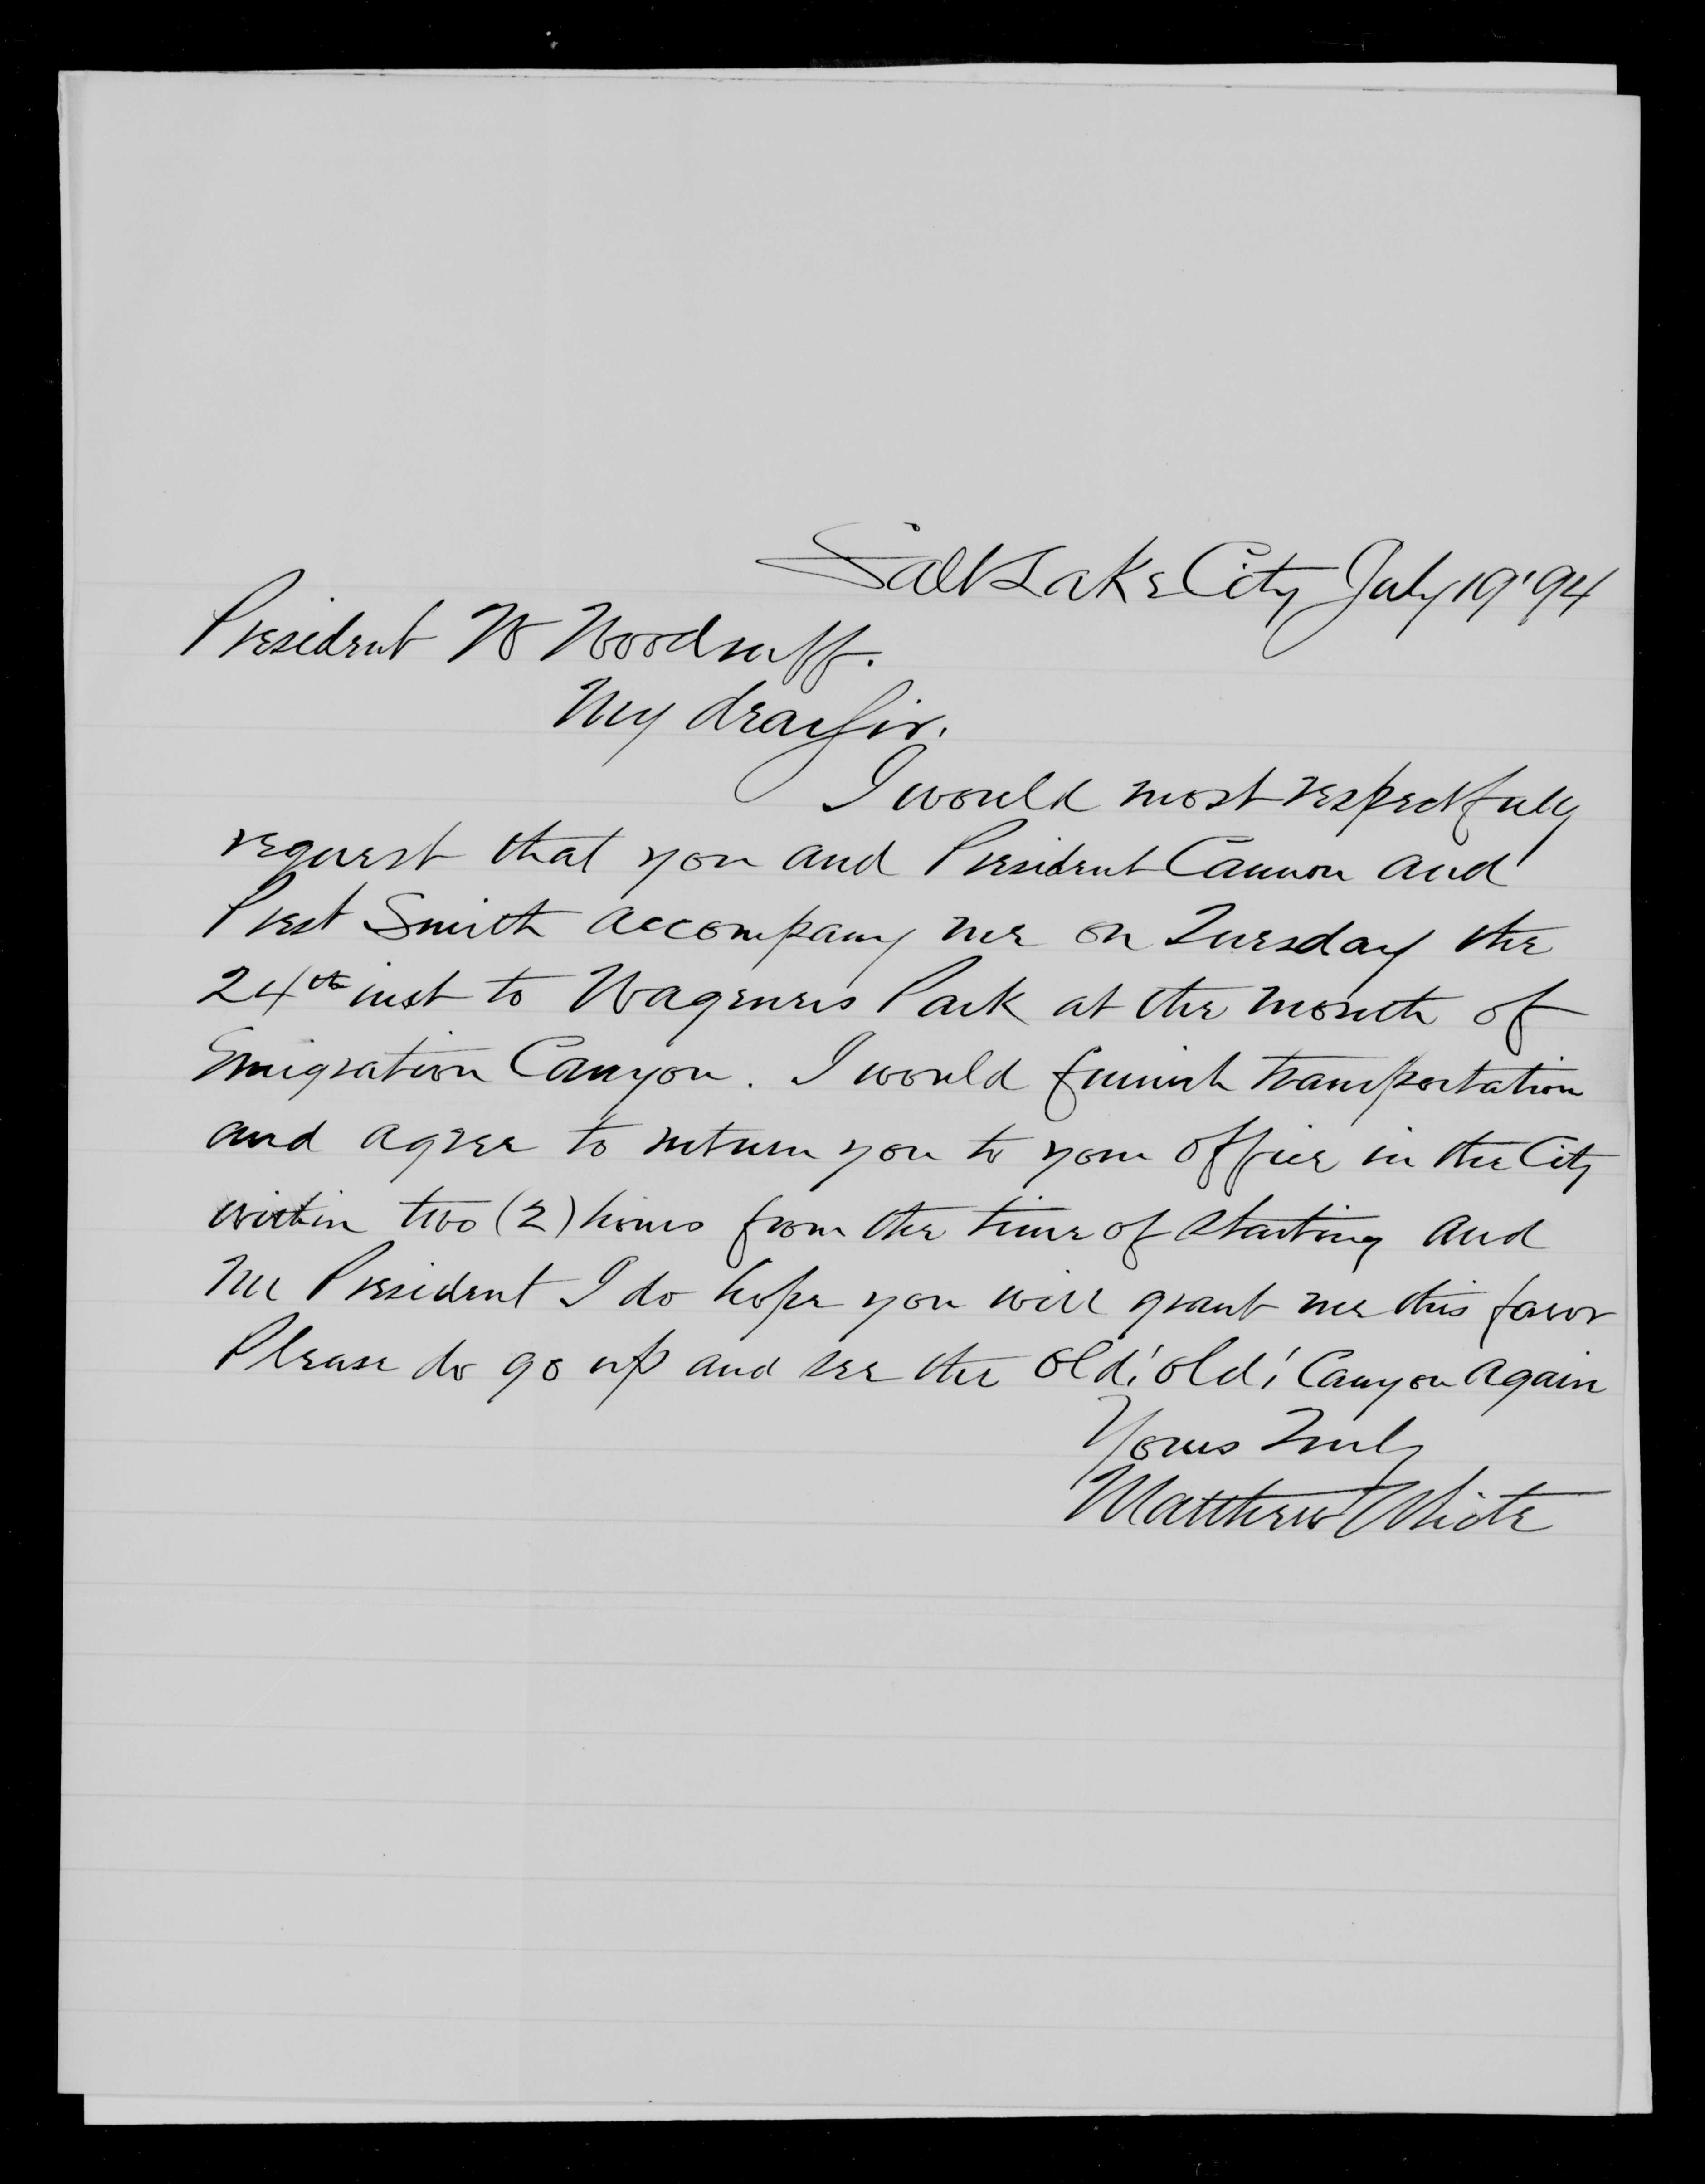 Salt Lake City July 19' 94
President W Woodruff.
My dear Sir.
I would most respectfully
request that you and President Cannon and
Prest Smith accompany me on Tuesday the
24th inst to Wageners Park at the mouth of
Emigration Canyon. I would furnish transportation
and agree to return you to your office in the City
within two (2) hours from the time of starting and
Mr President I do hope you will grant me this favor
Please do go up and see the old! old! Canyon again
Yours Truly
Matthew White